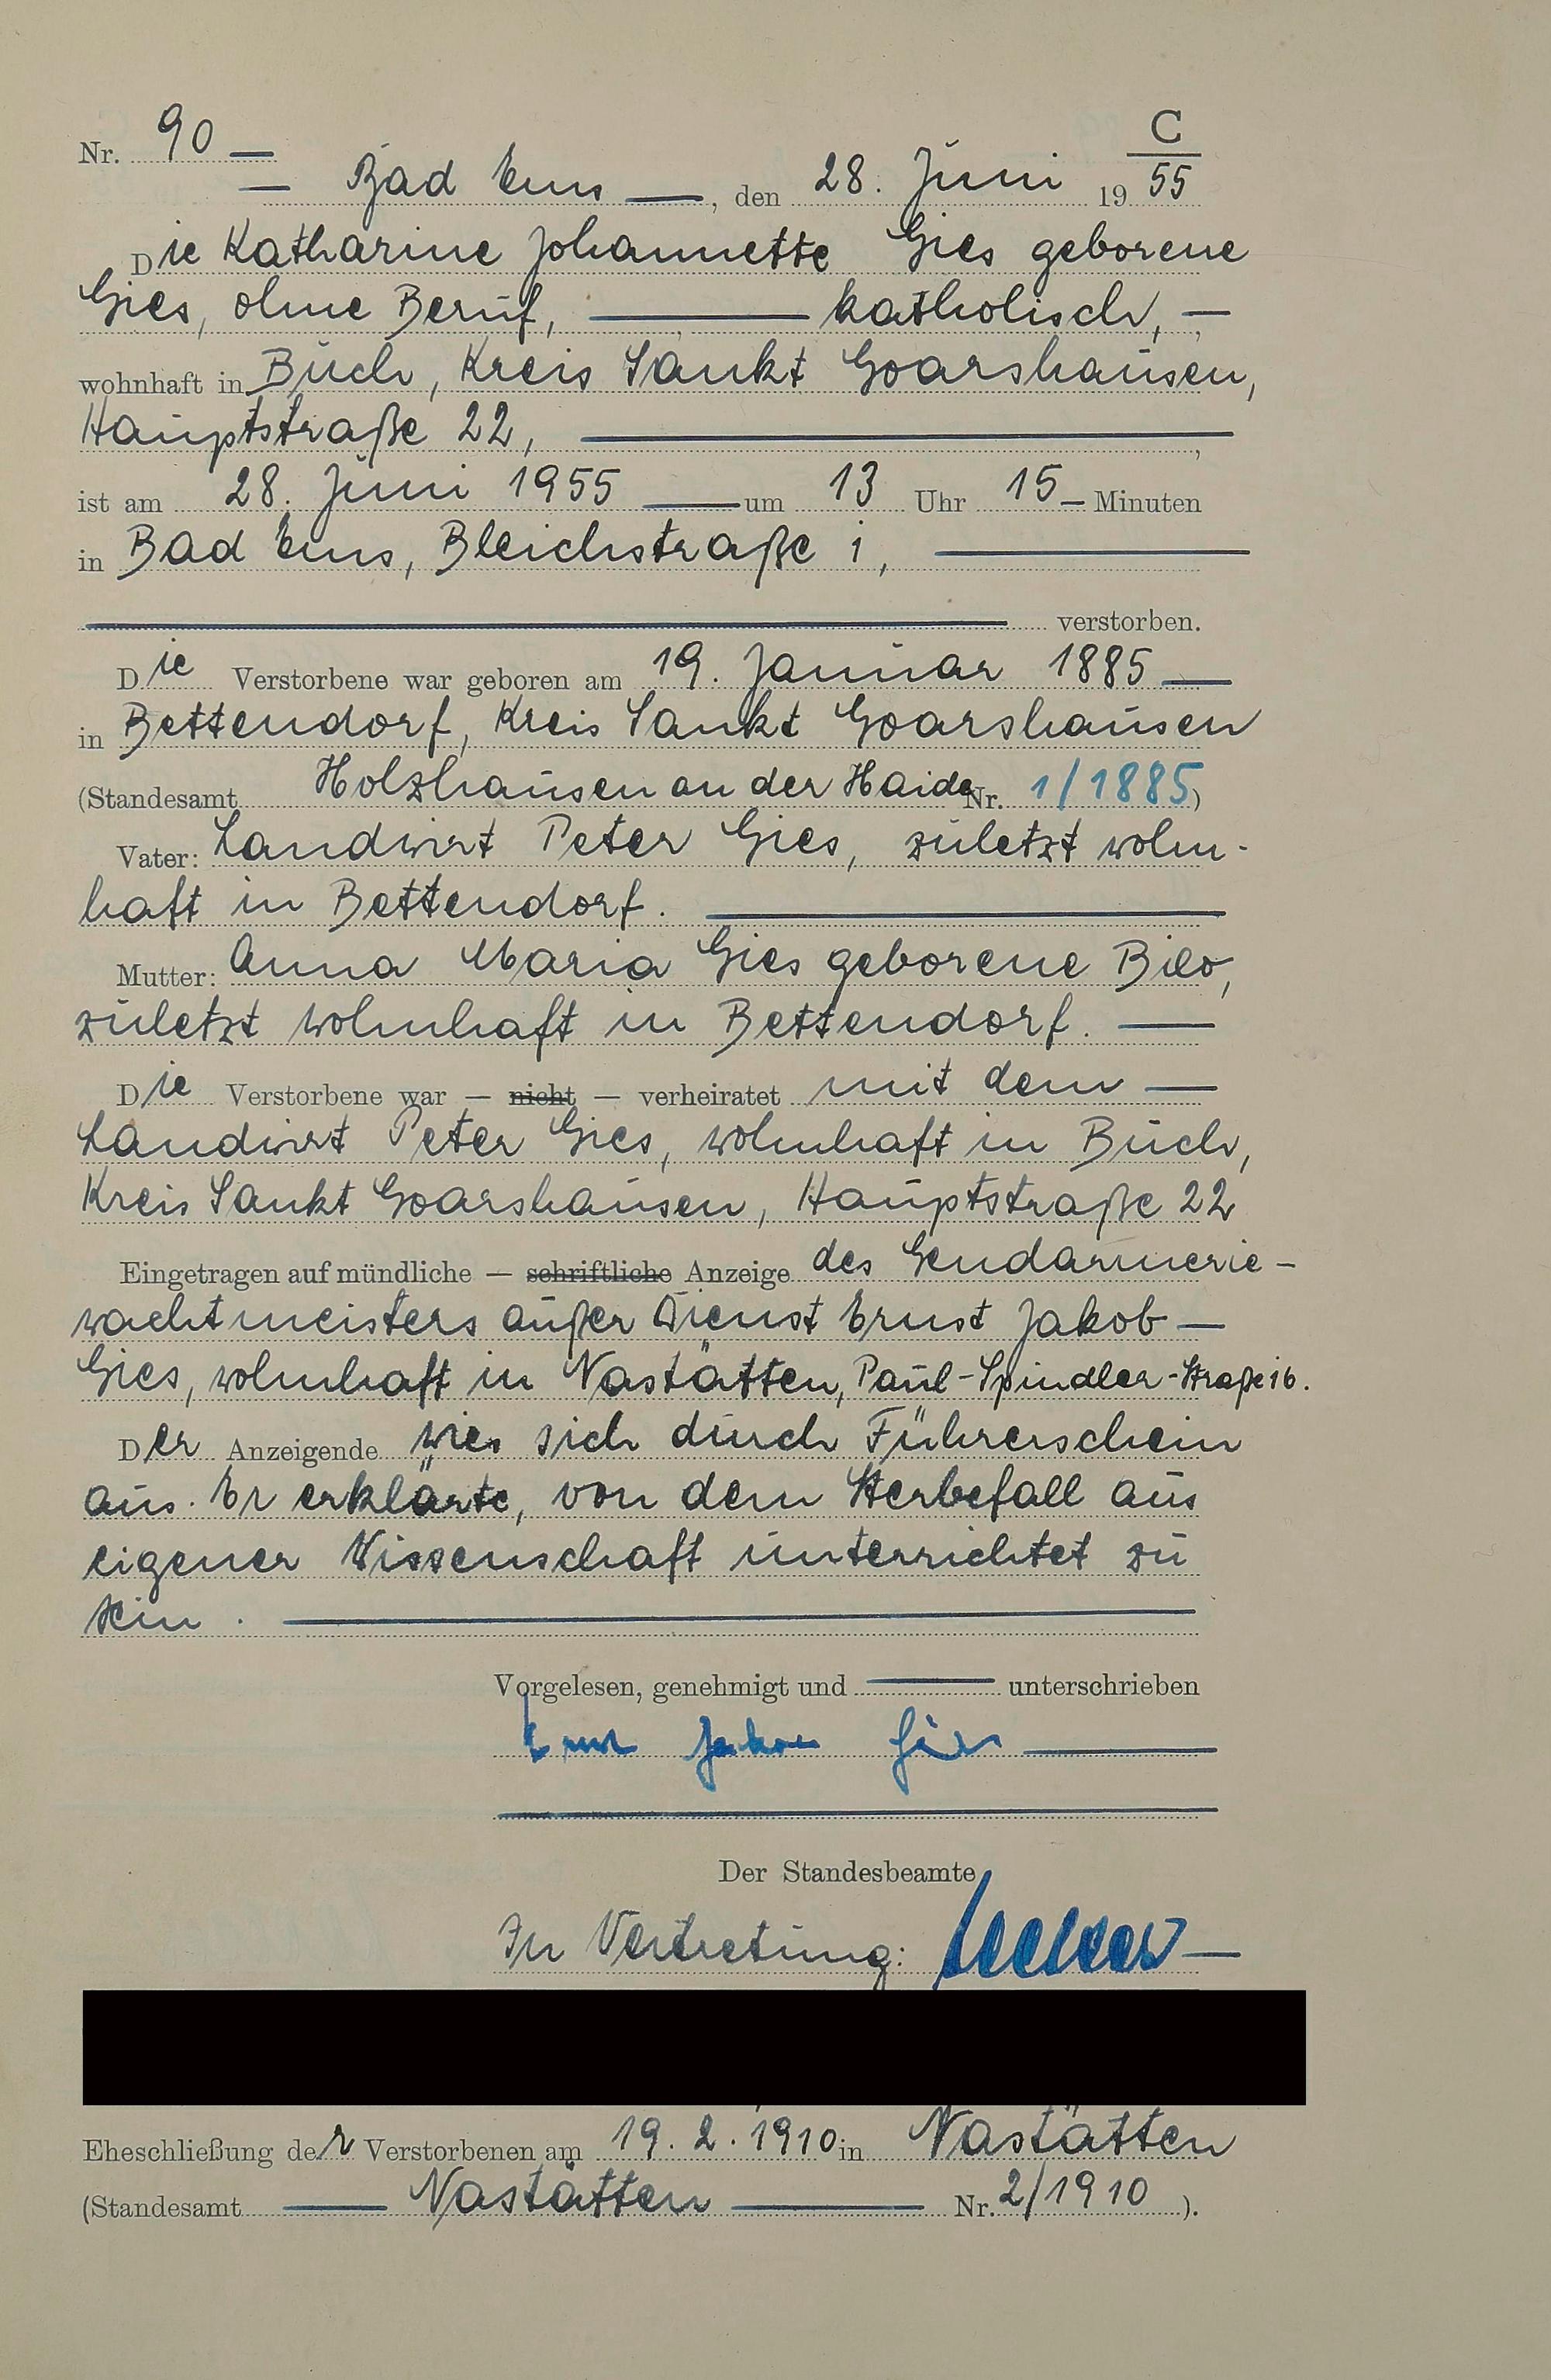 C
Nr. 90 —
— Bad Ems —, den 28. Juni 1955
Die Katharine Johannette Gies geborene
Gies, ohne Beruf, — katholisch, —
wohnhaft in Buch, Kreis Sankt Goarshausen,
Hauptstraße 22, —
ist am 28. Juni 1955 — um 13 Uhr 15 — Minuten
in Bad Ems, Bleichstraße 1, —
— verstorben.
Die Verstorbene war geboren am 19. Januar 1885 —
in Bettendorf, Kreis Sankt Goarshausen
(Standesamt Holzhausen an der Haide Nr. 1/1885)
Vater: Landwirt Peter Gies, zuletzt wohn-
haft in Bettendorf. —
Mutter: Anna Maria Gies geborene Bilo,
zuletzt wohnhaft in Bettendorf. —
Die Verstorbene war — nicht — verheiratet mit dem —
Landwirt Peter Gies, wohnhaft in Buch,
Kreis Sankt Goarshausen, Hauptstraße 22
Eingetragen auf mündliche — schriftliche Anzeige des Gendarmerie-
wachtmeisters außer Dienst Ernst Jakob —
Gies, wohnhaft in Nastätten, Paul-Spindler-Straße 16.
Der Anzeigende wies sich durch Führerschein
aus. Er erklärte, von dem Sterbefall aus
eigener Wissenschaft unterrichtet zu
sein. —
Vorgelesen, genehmigt und — unterschrieben
Ernst Jakob Gies —
Der Standesbeamte
In Vertretung: —
Eheschließung der Verstorbenen am 19.2.1910 in Nastätten
(Standesamt — Nastätten — Nr. 2/1910).